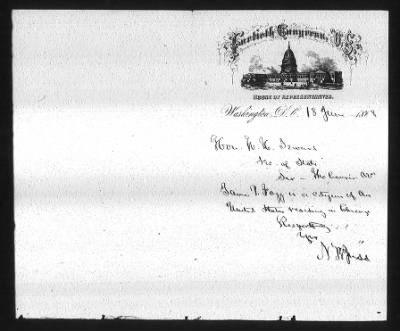 Fortieth Congress, U.S.
HOUSE OF REPRESENTATIVES.
Washington, D.C. 18 June 1868
Hon. W. H. Seward
Sec. of State
Sir - The bearer
James P. is a citizen of the
United States residing in
Respectfully
Yrs